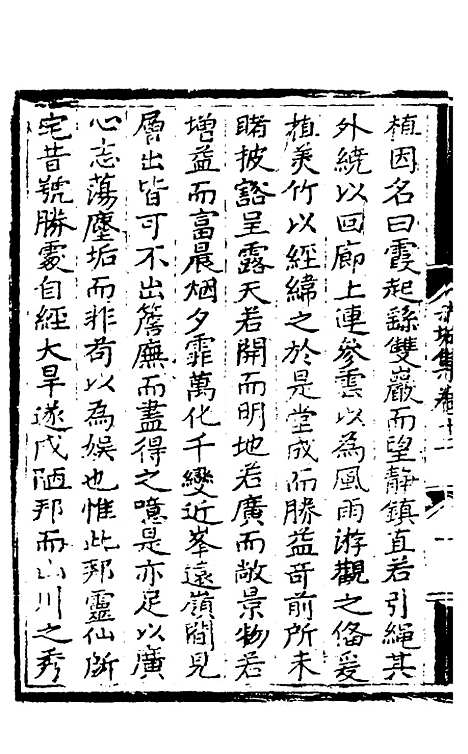 植因名曰霞起繇雙巖而望靜鎮直若引繩其
外繞以回廊上連參雲以為風雨游觀之俻爰
植美竹以經緯之於是堂成而勝益竒前所未
睹披豁呈露天若開而明地若廣而敞景物若
增益而富晨烟夕霏萬化千變近峯遠嶺間見
層出皆可不出簷廡而盡得之噫是亦足以廣
心志蕩塵垢而非苟以為娱也惟此邦靈仙所
宅昔號勝處自經大旱遂戍陋邦而山川之秀